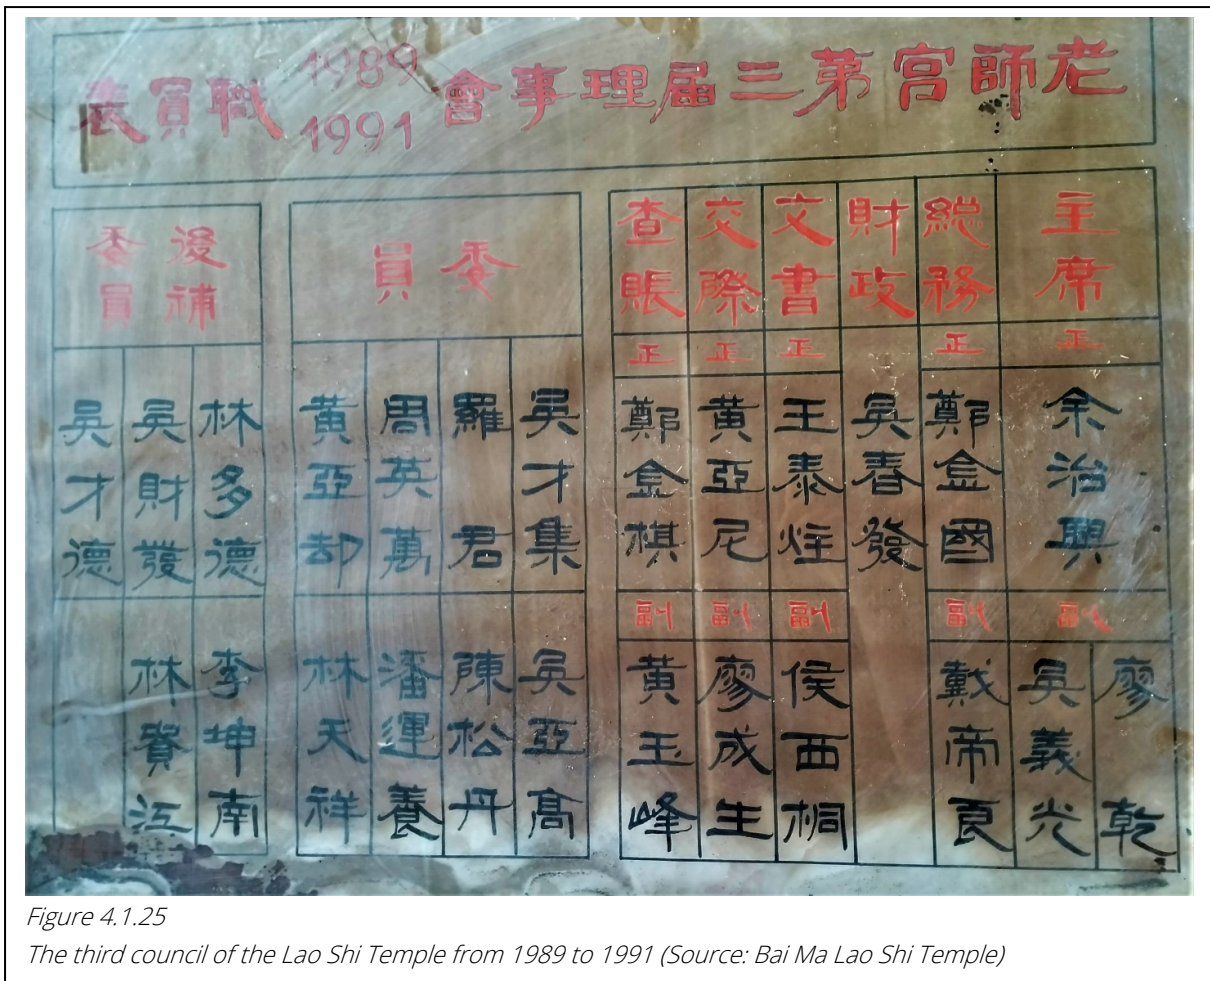 老師宮第三屆理事會
1989
1991
職員表
主席
正
余治興
副
廖乾
吳義光
総務
正
鄭金國
副
戴帝良
財政
吳春發
文書
正
王泰炷
副
侯西桐
交際
正
黃亞尼
副
廖成生
查賬
正
鄭金棋
副
黃玉峰
委員
吳才集
羅君
周英萬
黃亞却
吳亞髙
陳松丹
潘運養
林天祥
後補
委員
林多德
吳財發
吳才德
李坤南
林賚江
Figure 4.1.25
The third council of the Lao Shi Temple from 1989 to 1991 (Source: Bai Ma Lao Shi Temple)